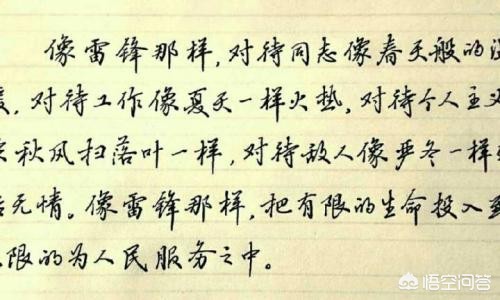 像雷锋那样,对待同志像春天般的
,对待工作像夏天一样火热,对待个人主义
秋风扫落叶一样,对待敌人像严冬一样
无情。像雷锋那样,把有限的生命投入到
限的为人民服务之中。
悟空问答